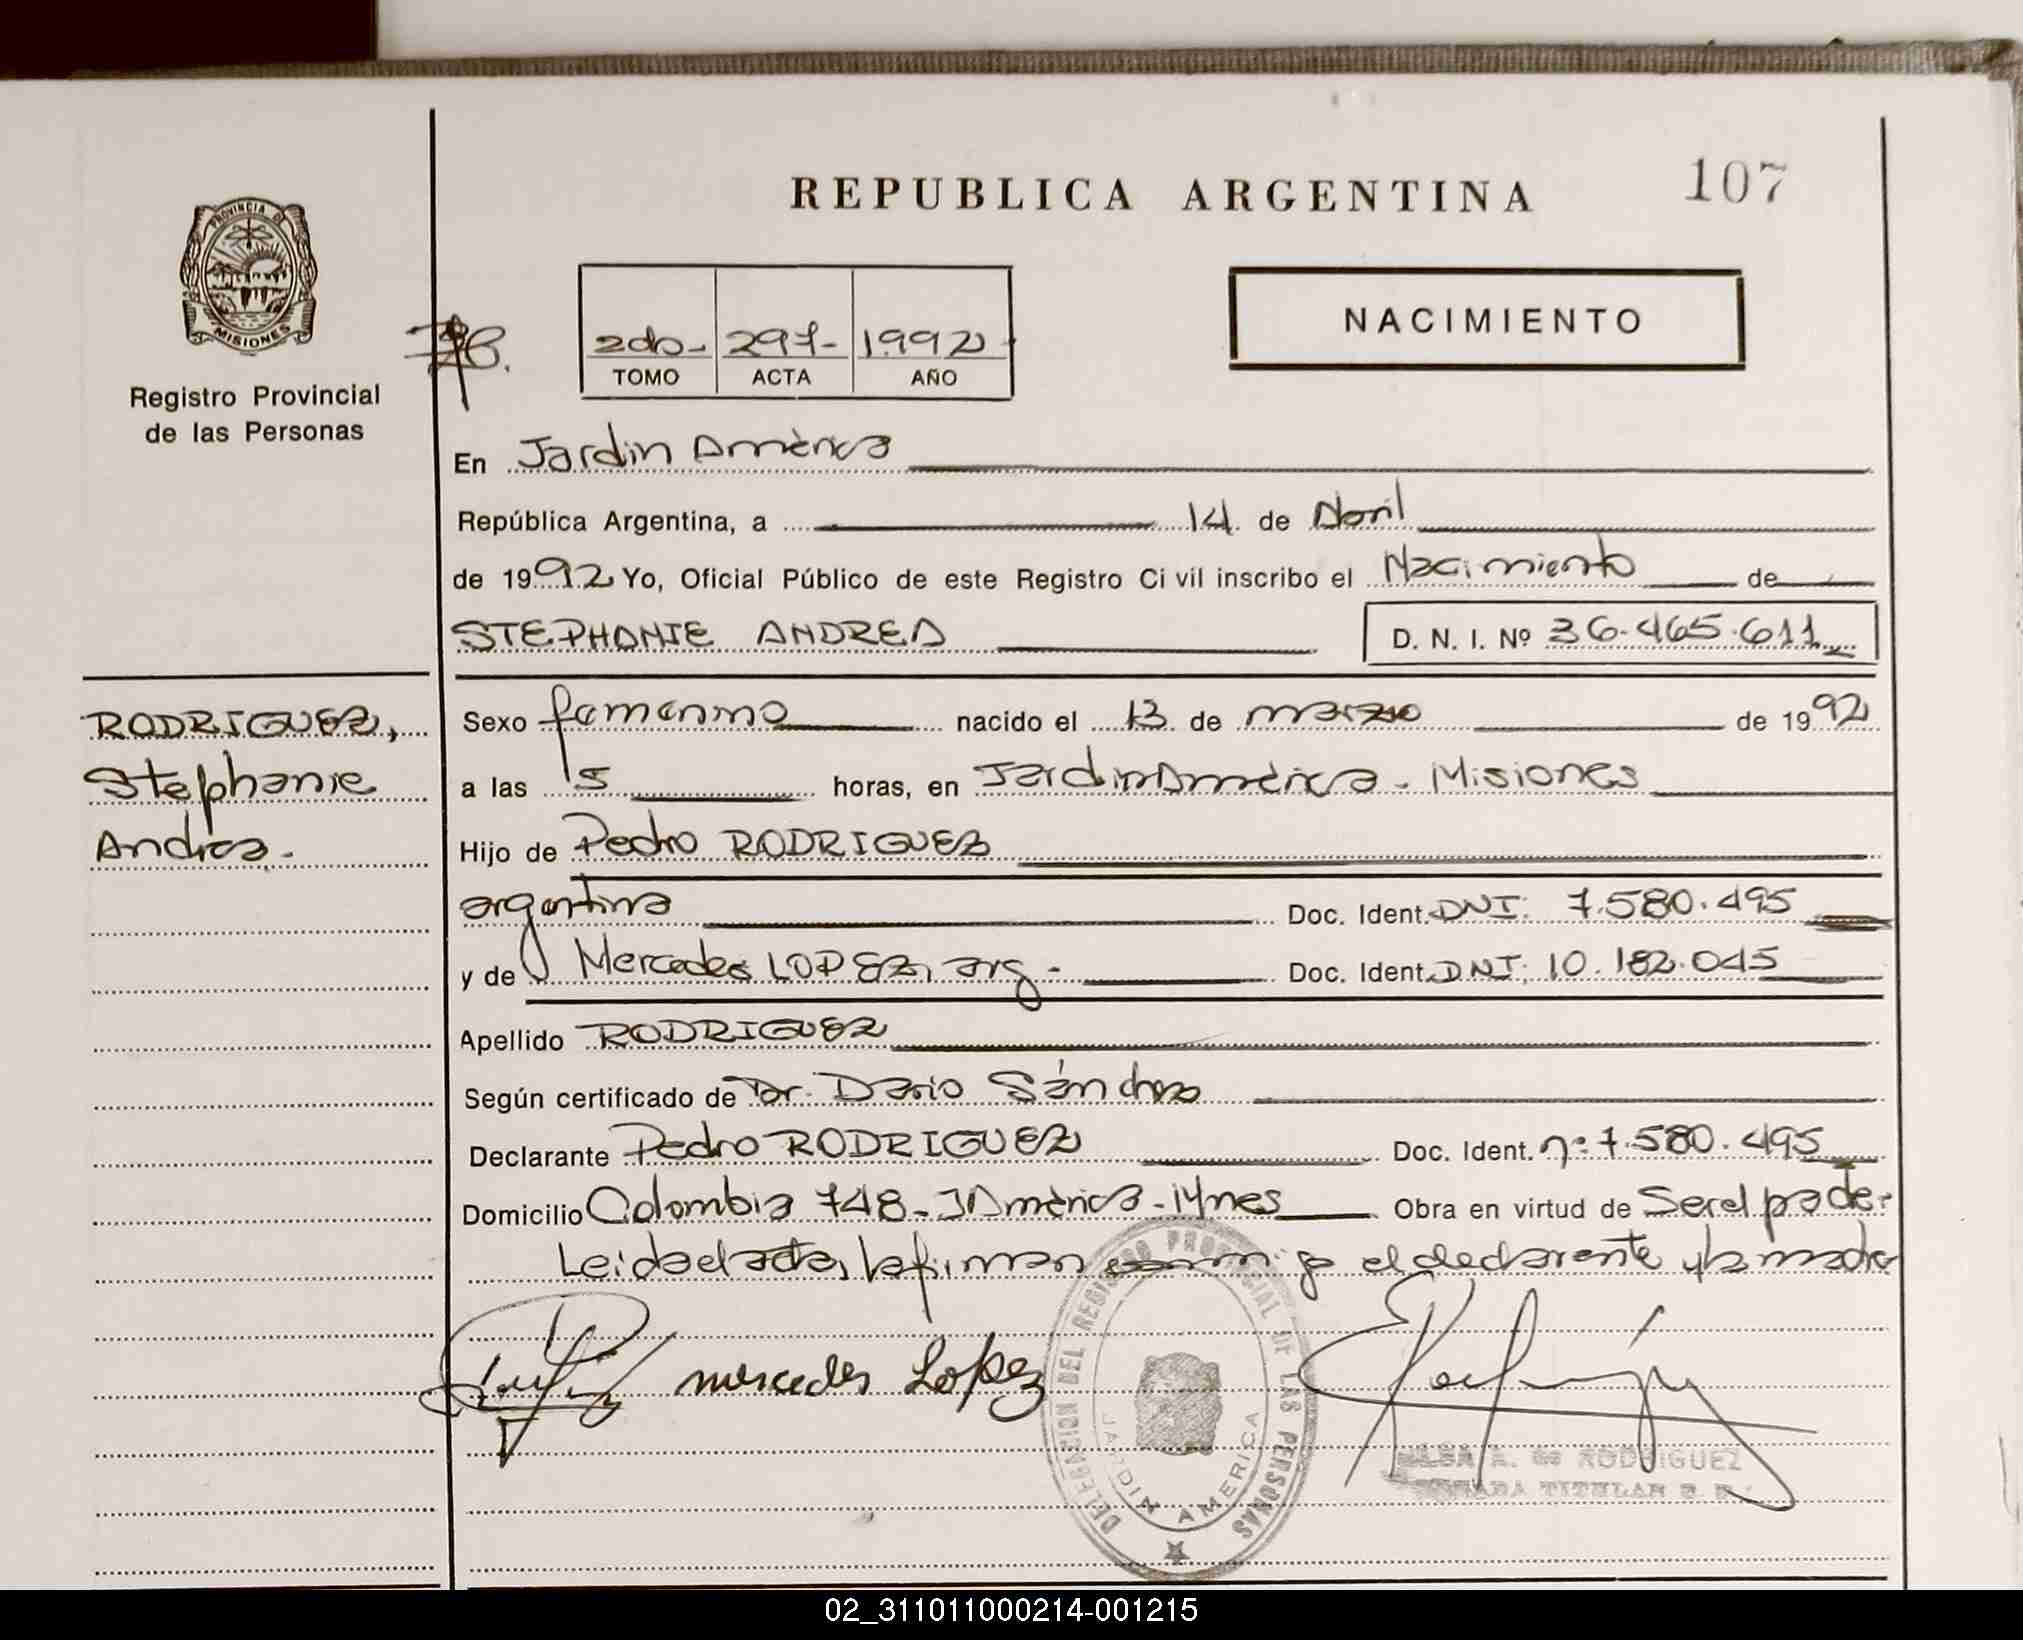 REPUBLICA ARGENTINA
107
PROVINCIA DE
MISIONES
Registro Provincial
de las Personas
2do- 297- 1992
TOMO ACTA AÑO
NACIMIENTO
En Jardin América
República Argentina, a 14 de Abril
de 1992 Yo, Oficial Público de este Registro Civil inscribo el Nacimiento de
STEPHANIE ANDREA D. N. I. Nº 36.465.611
RODRIGUEZ,
Stephanie
Andrea.
Sexo femenino nacido el 13 de marzo de 1992
a las 15 horas, en Jardin América - Misiones
Hijo de Pedro RODRIGUEZ
argentina Doc. Ident. DNI: 7.580.495
y de Mercedes LOPEZ, arg- Doc. Ident. DNI: 10.182.045
Apellido RODRIGUEZ
Según certificado de Dr. Dario Sánchez
Declarante Pedro RODRIGUEZ Doc. Ident. nº 7.580.495
Domicilio Colombia 748- J América - Mnes Obra en virtud de Ser el padre.
Leida el acta, la firman conmigo el declarante y la madre
mercedes Lopez
DELEGACION DEL REGISTRO PROVINCIAL DE LAS PERSONAS
JARDIN AMERICA
A. de RODRIGUEZ
TITULAR R. P.
02_311011000214-001215